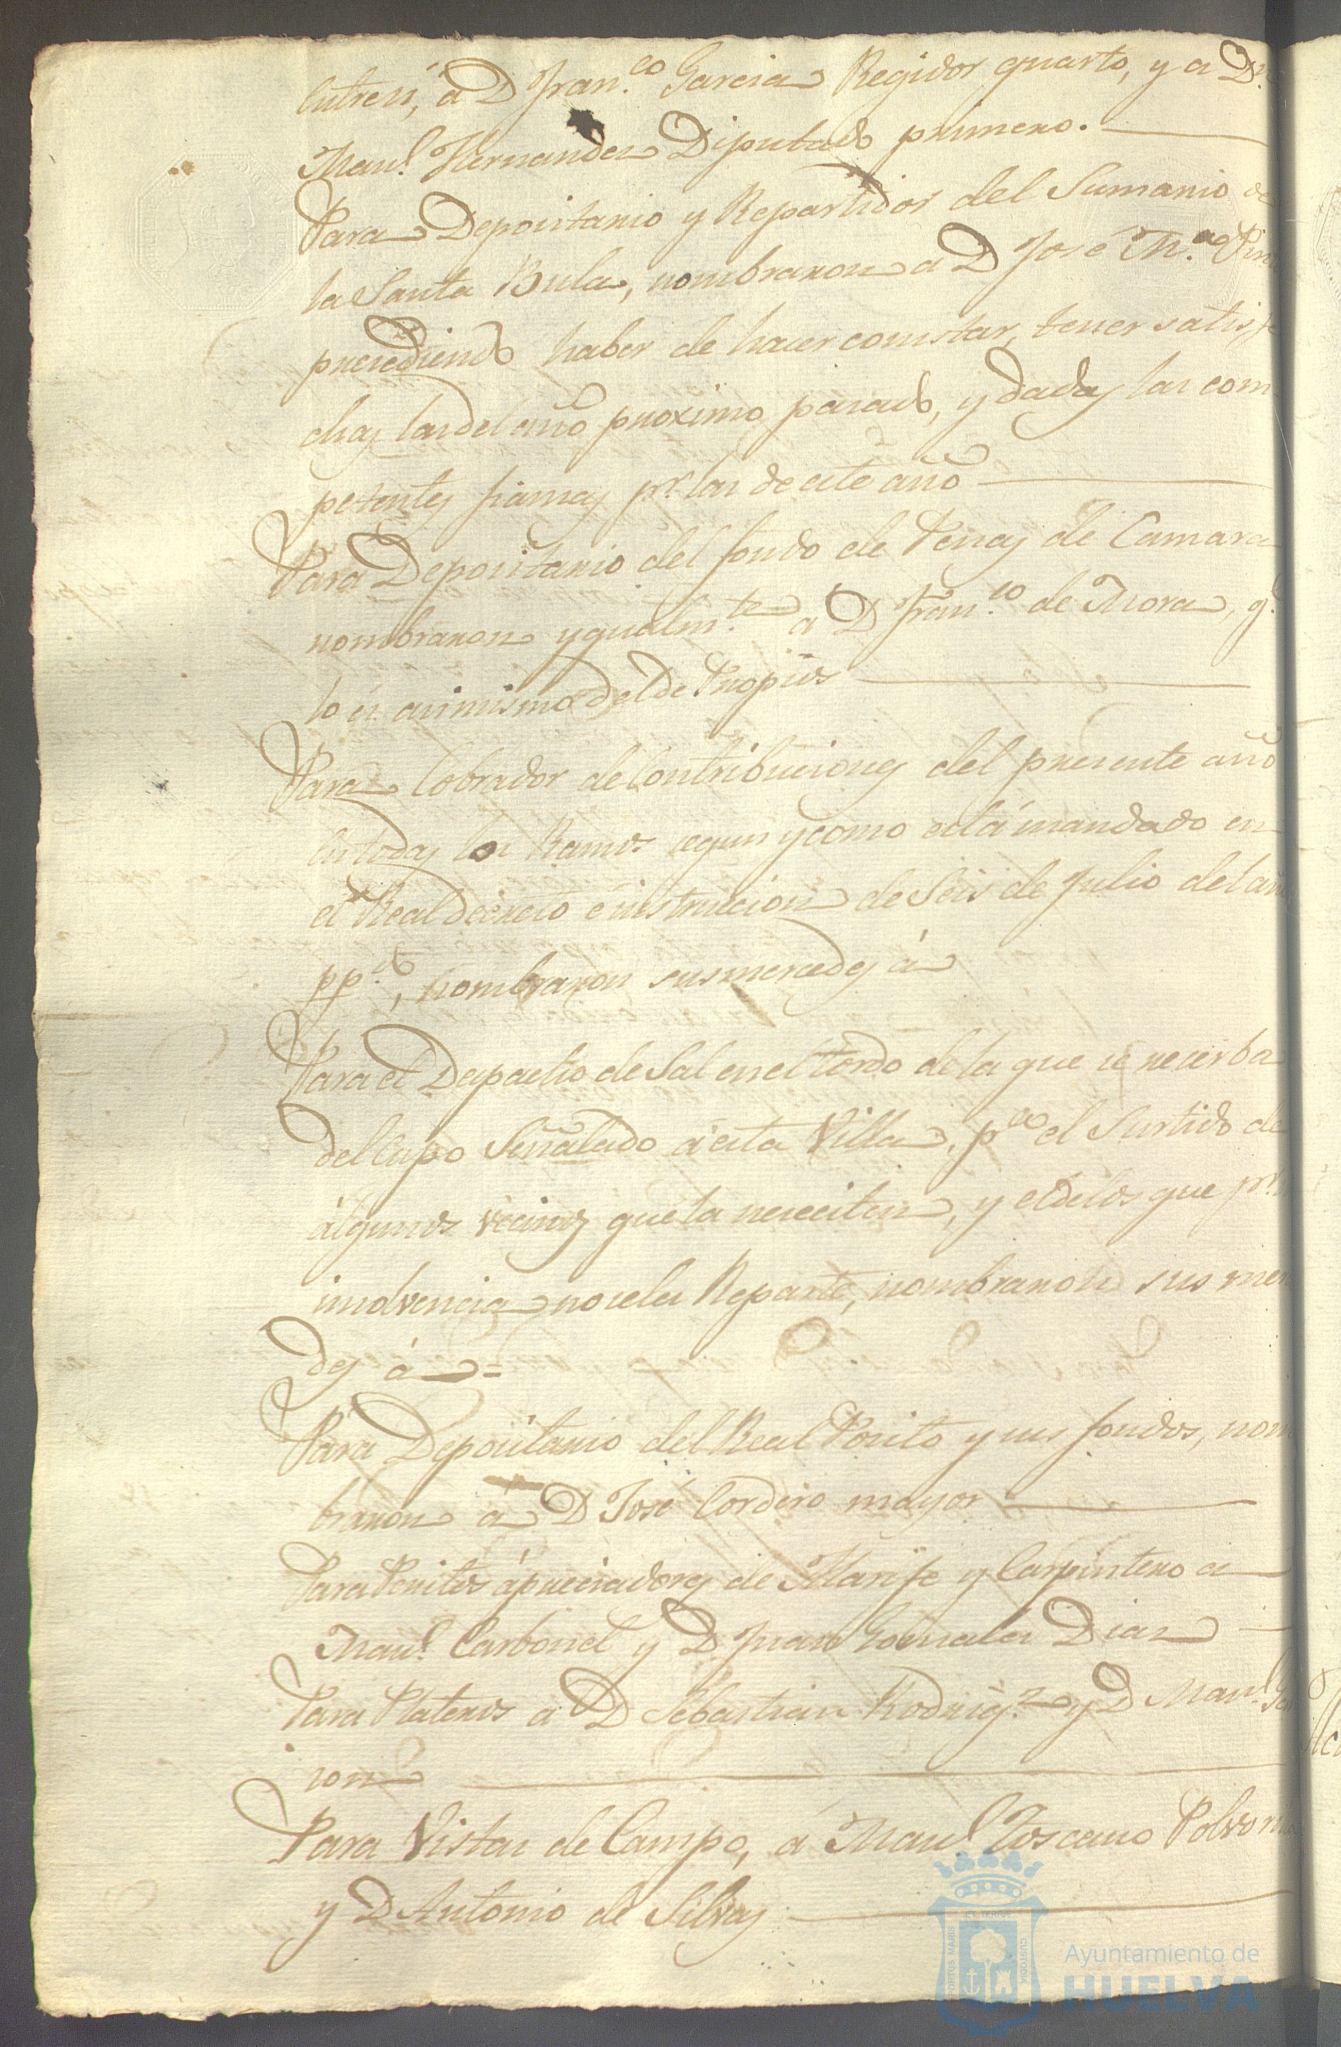 lutren, á D Fran.co Garcia Regidor quarto, y a Dn
Manl. Hernandez Diputado primero.
Para Depocitario y Repartidor del Sumario de
la Santa Bula, nombraron a D José M.a
precediendo haber de hacer constar, tener satisfe
chas las del año proximo pasado, y dadas las com
petentes fianzas pr. las de este año
Para Depocitario del fondo de Penas de Camara
nombraron ygualm.te a D Fran.co de Mora, q.
lo es asimismo del de Propios
Para Cobrador de Contribuciones del presente año
en todos los Ramos segun y como está mandado en
el Real decreto e instrucion de Seis de Julio del añ
pp.do, nombraron sus mercedes á
Para el Depacho de Sal en el tordo de la que se recerba
del Cupo Señalado á esta Villa, p.a el Surtido de
álgunos vecinos que la nececiten, y el de los que pr.
insolvencia no se les Reparte, nombraron sus mer
des á =
Para Depocitario del Real Posito y sus fondos, nom
braron á D José Cordero mayor
Para Peritos ápreciadores de Alarife y Carpintero a
Manl. Carbonel y D. Juan Gonzales Diaz
Para Plateros a D Sebastian Rodrig.z y D Manl.
ron
Para Vistas de Campo, á Manl. Toscano
y D Antonio de Silva
Ayuntamiento de
HUELVA